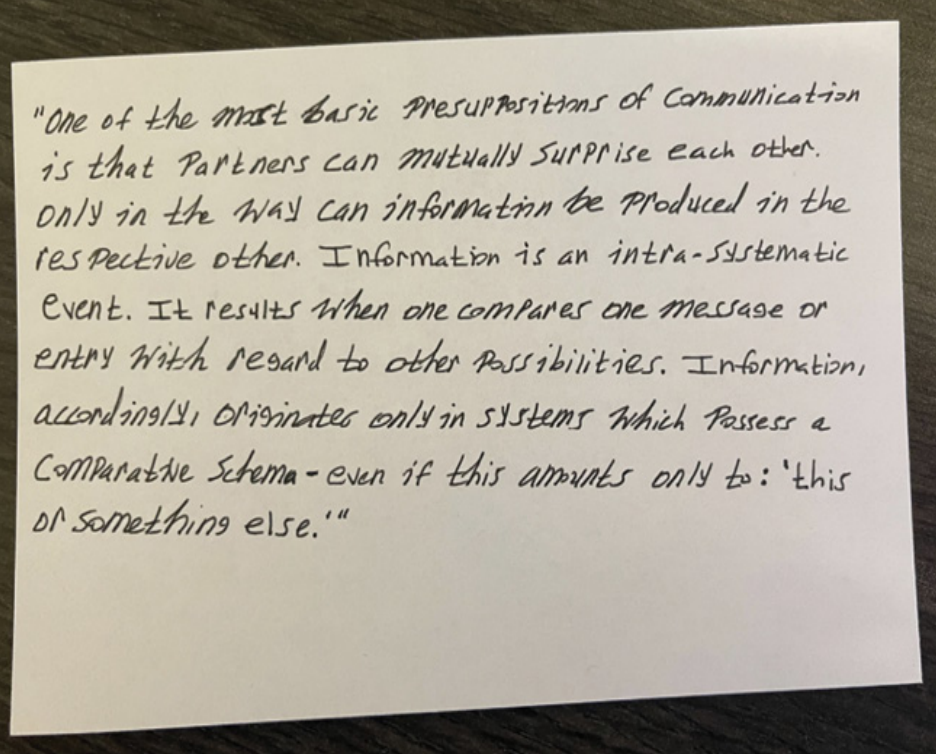 "One of the most basic presuppositions of communication
is that partners can mutually surprise each other.
only in the way can information be produced in the
respective other. Information is an intra-systematic
event. It results when one compares one message or
entry with regard to other possibilities. Information,
accordingly, originates only in systems which possess a
comparative schema - even if this amounts only to: 'this
or something else.'"